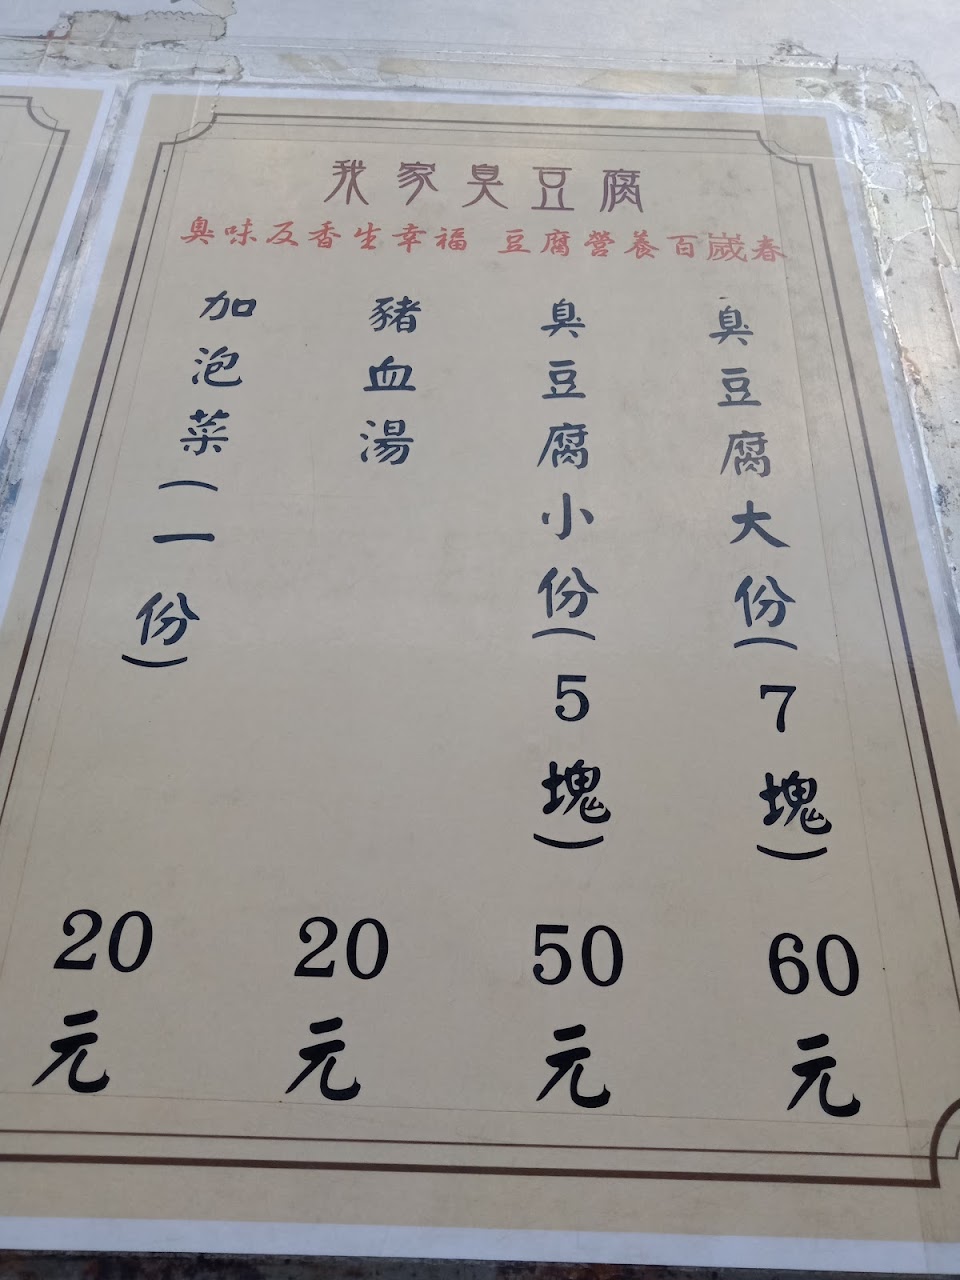 我家臭豆腐
臭味反香生幸福 豆腐營養百歲春
臭豆腐大份(7塊) 60元
臭豆腐小份(5塊) 50元
豬血湯 20元
加泡菜(一份) 20元